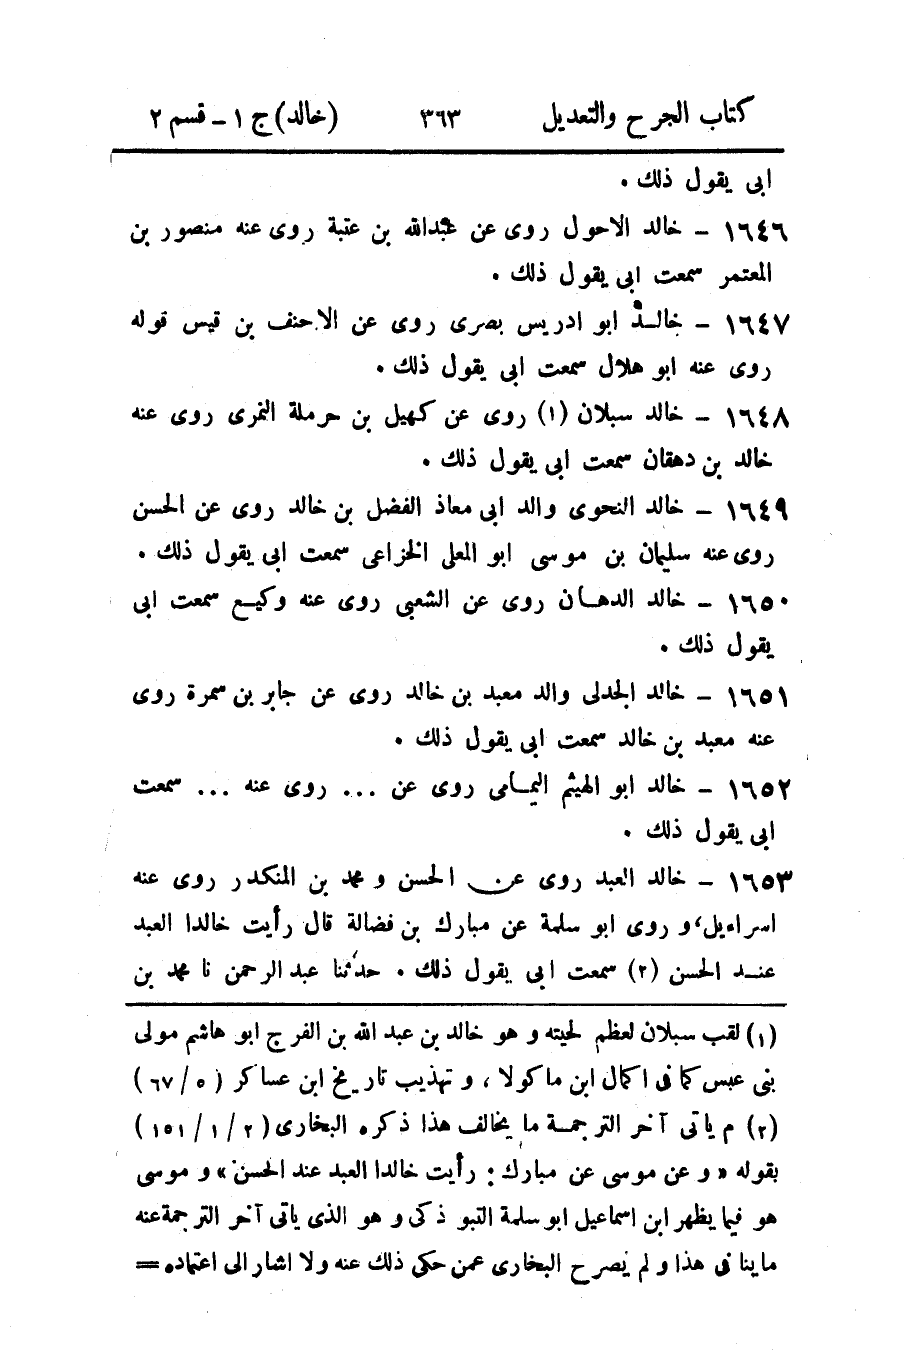 كتاب الجرح والتعديل ٣٦٣ (خالد) ج ١ - قسم ٢
ابى يقول ذلك .
١٦٤٦ - خالد الاحول روى عن عبدالله بن عتبة روى عنه منصور بن
المعتمر سمعت ابى يقول ذلك .
١٦٤٧ - خالد ابو ادريس بصرى روى عن الاحنف بن قيس قوله
روى عنه ابو هلال سمعت ابى يقول ذلك .
١٦٤٨ - خالد سبلان (١) روى عن كهيل بن حرملة النمرى روى عنه
خالد بن دهقان سمعت ابى يقول ذلك .
١٦٤٩ - خالد النحوى والد ابى معاذ الفضل بن خالد روى عن الحسن
روى عنه سليمان بن موسى ابو المعلى الخزاعى سمعت ابى يقول ذلك .
١٦٥٠ - خالد الدهان روى عن الشعبى روى عنه وكيع سمعت ابى
يقول ذلك .
١٦٥١ - خالد الجدلى والد معبد بن خالد روى عن جابر بن سمرة روى
عنه معبد بن خالد سمعت ابى يقول ذلك .
١٦٥٢ - خالد ابو الهيثم اليمامى روى عن ... روى عنه ... سمعت
ابى يقول ذلك .
١٦٥٣ - خالد العبد روى عن الحسن و محمد بن المنكدر روى عنه
اسراءيل، و روى ابو سلمة عن مبارك بن فضالة قال رأيت خالدا العبد
عند الحسن (٢) سمعت ابى يقول ذلك . حدثنا عبد الرحمن نا محمد بن
(١) لقب سبلان لعظم لحيته و هو خالد بن عبد الله بن الفرج ابو هاشم مولى
بنى عبس كما فى اكمال ابن ماكولا ، و تهذيب تاريخ ابن عساكر (٥ / ٦٧)
(٢) م ياتى آخر الترجمة ما يخالف هذا ذكره البخارى (٢ / ١ / ١٥١)
بقوله « و عن موسى عن مبارك : رأيت خالدا العبد عند الحسن » و موسى
هو فيما يظهر ابن اسماعيل ابو سلمة التبوذكى و هو الذى ياتى آخر الترجمة عنه
ماينا فى هذا و لم يصرح البخارى عمن حكى ذلك عنه ولا اشار الى اعتماده =